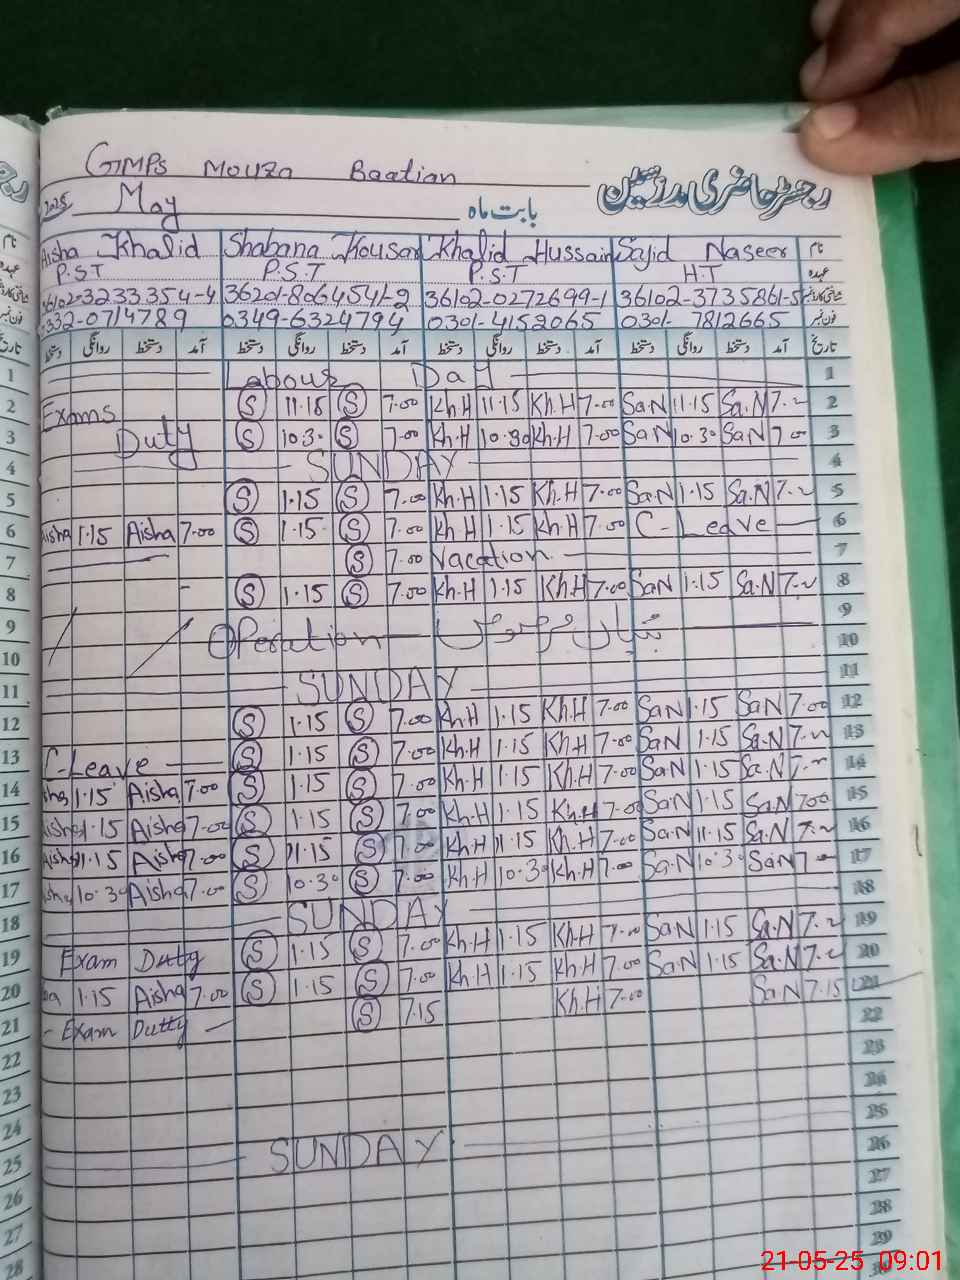 GMPS Mouza Baatian
رجسٹر حاضری مدرسین
2025 May بابت ماہ
Aisha Khalid Shabana Kousar Khalid Hussain Sajid Naseer نام
P.S.T P.S.T P.S.T H.T عہدہ
36102-3233354-4 36201-8064541-2 36102-0272699-1 36102-3735861-5
0332-0714789 0349-6324794 0301-4152065 0301-7812665 فون نمبر
دستخط روانگی دستخط آمد دستخط روانگی دستخط آمد دستخط روانگی دستخط آمد دستخط روانگی دستخط آمد تاریخ
1 Labour Day 1
2 Exams S 11.15 S 7.00 Kh.H 11.15 Kh.H 7.00 Sa.N 11.15 Sa.N 7.00 2
3 Duty S 10.30 S 7.00 Kh.H 10.30 Kh.H 7.00 Sa.N 10.30 Sa.N 7.00 3
4 SUNDAY 4
5 S 1.15 S 7.00 Kh.H 1.15 Kh.H 7.00 Sa.N 1.15 Sa.N 7.00 5
6 Aisha 1.15 Aisha 7.00 S 1.15 S 7.00 Kh.H 1.15 Kh.H 7.00 C-Leave 6
7 S 7.00 Vacation 7
8 S 1.15 S 7.00 Kh.H 1.15 Kh.H 7.00 Sa.N 1.15 Sa.N 7.00 8
9 Operation 9
10 10
11 SUNDAY 11
12 S 1.15 S 7.00 Kh.H 1.15 Kh.H 7.00 Sa.N 1.15 Sa.N 7.00 12
13 C-Leave S 1.15 S 7.00 Kh.H 1.15 Kh.H 7.00 Sa.N 1.15 Sa.N 7.00 13
14 Aisha 1.15 Aisha 7.00 S 1.15 S 7.00 Kh.H 1.15 Kh.H 7.00 Sa.N 1.15 Sa.N 7.00 14
15 Aisha 1.15 Aisha 7.00 S 1.15 S 7.00 Kh.H 1.15 Kh.H 7.00 Sa.N 1.15 Sa.N 7.00 15
16 Aisha 11.15 Aisha 7.00 S 11.15 S 7.00 Kh.H 11.15 Kh.H 7.00 Sa.N 11.15 Sa.N 7.00 16
17 Aisha 10.30 Aisha 7.00 S 10.30 S 7.00 Kh.H 10.30 Kh.H 7.00 Sa.N 10.30 Sa.N 7.00 17
18 SUNDAY 18
19 Exam Duty S 1.15 S 7.00 Kh.H 1.15 Kh.H 7.00 Sa.N 1.15 Sa.N 7.00 19
20 1.15 Aisha 7.00 S 1.15 S 7.00 Kh.H 1.15 Kh.H 7.00 Sa.N 1.15 Sa.N 7.00 20
21 - Exam Dutty - S 7.15 Kh.H 7.00 Sa.N 7.15 21
22 22
23 23
24 24
25 SUNDAY 25
26 26
27 27
28 28
29
21-05-25 09:01